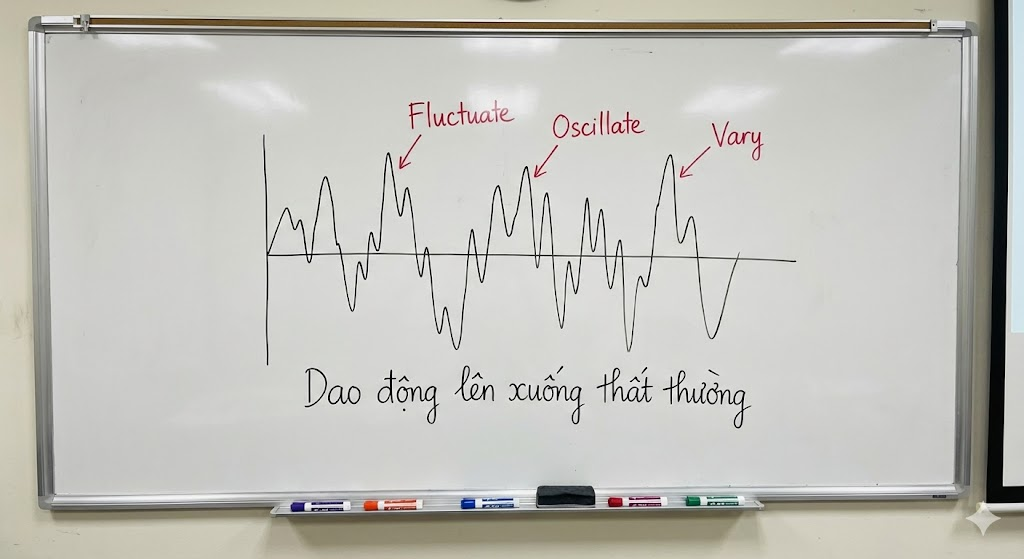 Fluctuate
Oscillate
Vary
Dao động lên xuống thất thường